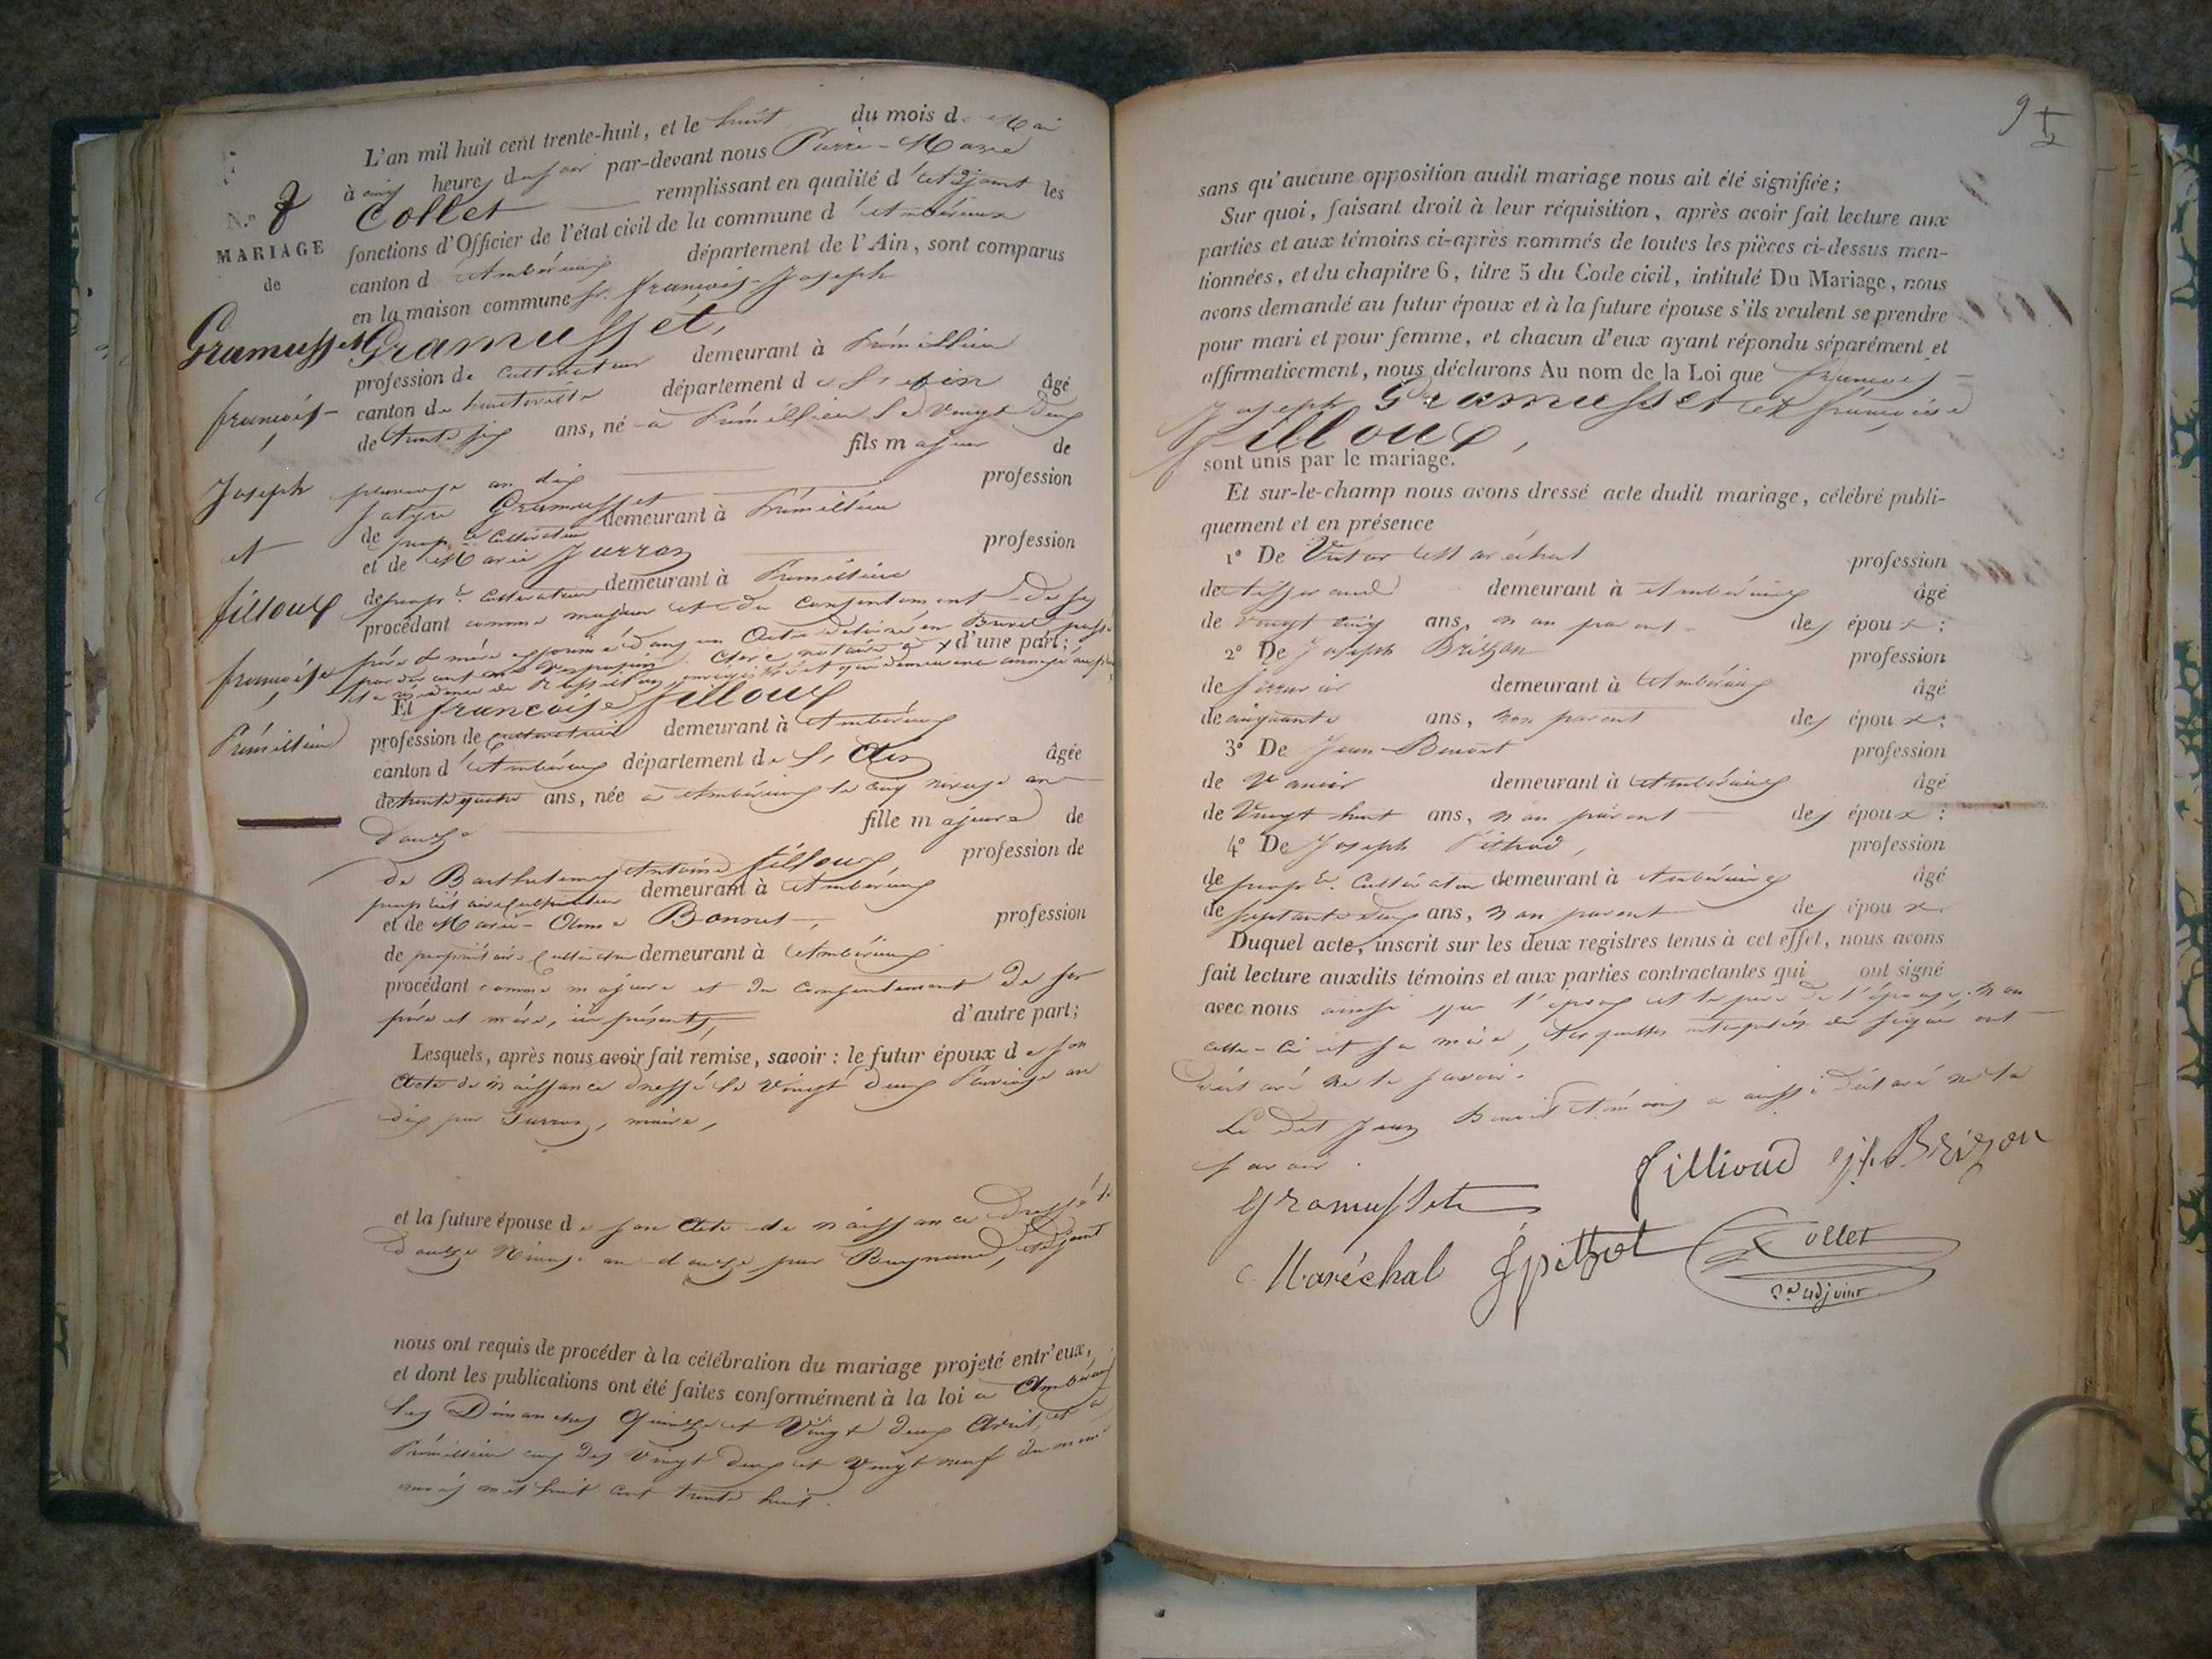 L'an mil huit cent trente-huit, et le huit du mois de Mai
à cinq heures du soir par-devant nous Pierre-Marie
Collet remplissant en qualité d'adjoint les
fonctions d'Officier de l'état civil de la commune d'Ambérieux
canton d'Ambérieux département de l'Ain, sont comparus
en la maison commune Sr. françois-Joseph
Gramusset,
profession de cultivateur demeurant à Prémillieu
canton de hauteville département de l'ain âgé
de trente six ans, né à Prémillieu le vingt deux
pluviose an dix fils majeur de
Satyre Gramusset profession
de propre. Cultivateur demeurant à Prémillieu
et de Marie Jurron profession
de propre. Cultivateur demeurant à Prémillieu
procédant comme majeur et du consentement de ses
père et mère exprimé dans un Acte délivré en Brevet passé
par devant me notaire à d'une part;
la résidence de enregistré et qui demeurera annexé
Et françoise filloux
profession de cultivatrice demeurant à Ambérieux
canton d'Ambérieux département de l'Ain âgée
de trente quatre ans, née à Ambérieux le cinq nivose an
douze fille majeure de
de Barthelemy Antoine filloux, profession de
propriétaire Cultivateur demeurant à Ambérieux
et de Marie-Anne Bonnet, profession
de propriétaire Cultivateur demeurant à Ambérieux
procédant comme majeure et du consentement de ses
père et mère, ici présents, d'autre part;
Lesquels, après nous avoir fait remise, savoir: le futur époux de son
Acte de naissance dressé le vingt deux Pluviose an
dix par Jurron, maire,
et la future épouse de son Acte de naissance dressé le
douze Nivose an douze par Buynand, adjoint
nous ont requis de procéder à la célébration du mariage projeté entr'eux,
et dont les publications ont été faites conformément à la loi à Ambérieux
les Dimanches Quinze et Vingt deux Avril, et à
Prémillieu aux des vingt deux et vingt neuf du même
mois mil huit cent trente huit.
N.º 8
MARIAGE
de
Gramusset
françois-
Joseph
et
filloux
françoise
Prémillieu
9
1/2
sans qu'aucune opposition audit mariage nous ait été signifiée;
Sur quoi, faisant droit à leur réquisition, après avoir fait lecture aux
parties et aux témoins ci-après nommés de toutes les pièces ci-dessus men-
tionnées, et du chapitre 6, titre 5 du Code civil, intitulé Du Mariage, nous
avons demandé au futur époux et à la future épouse s'ils veulent se prendre
pour mari et pour femme, et chacun d'eux ayant répondu séparément et
affirmativement, nous déclarons Au nom de la Loi que françois-
Joseph Gramusset et françoise
filloux,
sont unis par le mariage.
Et sur-le-champ nous avons dressé acte dudit mariage, célébré publi-
quement et en présence
1º De Victor Maréchal profession
de tisserand demeurant à Ambérieux âgé
de vingt cinq ans, non parent des époux;
2º De Joseph Brizon profession
de serrurier demeurant à Ambérieux âgé
de cinquante ans, non parent des époux;
3º De Jean-Benoit profession
de Vanier demeurant à Ambérieux âgé
de Vingt huit ans, non parent des époux:
4º De Joseph Pithod, profession
de propre. Cultivateur demeurant à Ambérieux âgé
de septante deux ans, non parent des époux.
Duquel acte, inscrit sur les deux registres tenus à cet effet, nous avons
fait lecture auxdits témoins et aux parties contractantes qui ont signé
avec nous ainsi que l'époux et le père de l'épouse, non
celle-ci et sa mère, lesquelles interpelées de signer ont
déclaré ne le savoir.
Le dit Jean Benoit témoin a aussi déclaré ne le
savoir.
fillioud jh Brizon
gramusset
Maréchal J pithod Collet
adjoint